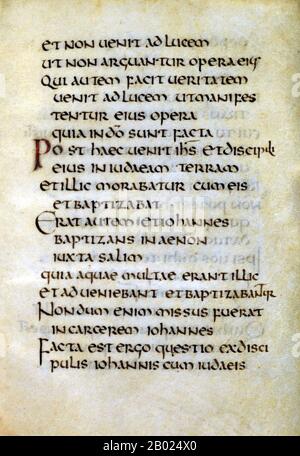 et non uenit ad lucem
ut non arguantur opera eius
qui autem facit ueritatem
uenit ad lucem ut manifes
tentur eius opera
quia in do sunt facta
Post haec uenit ihs et discipuli
eius in iudaeam terram
et illic morabatur cum eis
et baptizabat
Erat autem et iohannes
baptizans in aenon
iuxta salim
quia aquae multae erant illic
et adueniebant et baptizabantur
Nondum enim missus fuerat
in carcerem iohannes
Facta est ergo questio ex disci
pulis iohannis cum iudaeis
alamy
Image ID: 2B024X0
www.alamy.com